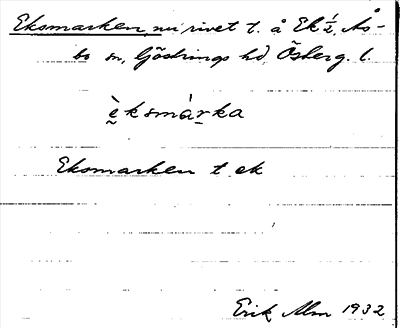 Eksmarken, nu rivet t. å Ek ½,Ås-
bo sn, Göstrings hd, Östergl. l.
è̬ksmàr̬ka
Eksmarken t. ek
Erik Alm 1932